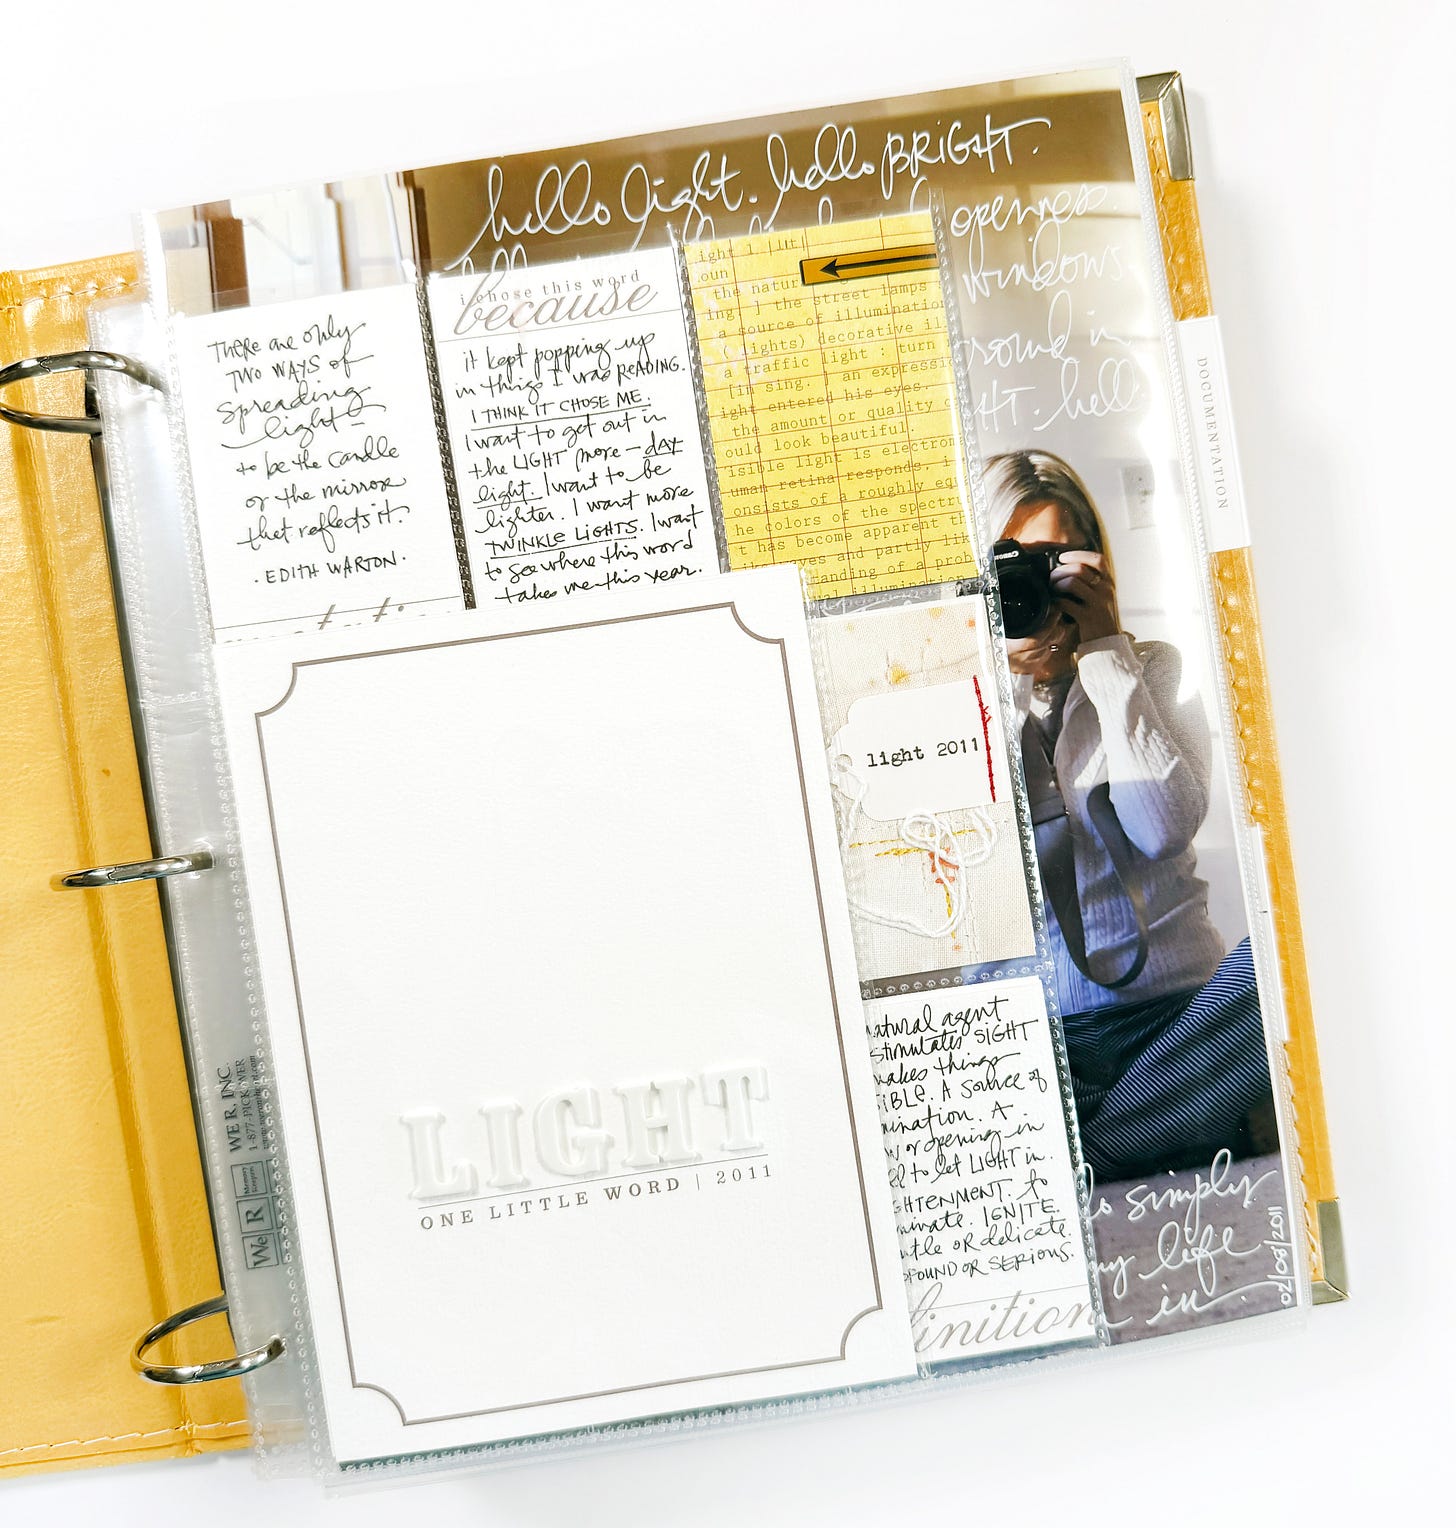 hello light. hello BRIGHT.
openness.
windows.
round in
HT. hello
There are only
TWO WAYS OF
spreading
light
to be the candle
or the mirror
that reflects it.
· EDITH WARTON ·
i chose this word
because
it kept popping up
in things I was READING.
I THINK IT CHOSE ME.
I want to get out in
the LIGHT more — DAY
light. I want to be
lighter. I want more
TWINKLE LIGHTS. I want
to see where this word
takes me this year.
ight 1 lit
oun
the natur
ing. ] the street lamps
a source of illumination
(lights) decorative il
a traffic light : turn
[in sing. ] an expressi
ight entered his eyes.
the amount or quality o
ould look beautiful.
isible light is electrom
uman retina responds. i
onsists of a roughly equ
he colors of the spectr
t has become apparent th
eyes and partly lik
anding of a prob
al illumination
DOCUMENTATION
light 2011
natural agent
stimulates SIGHT
makes things
SIBLE. A source of
mination. A
w or opening in
ll to let LIGHT in.
GHTENMENT. to
minate. IGNITE.
ntle OR delicate.
OFOUND OR SERIOUS.
finition
LIGHT
ONE LITTLE WORD | 2011
o simply
my life
in.
02/08/2011
WE R, INC.
1-877-PICK-OVER
We R
Memory
Keepers